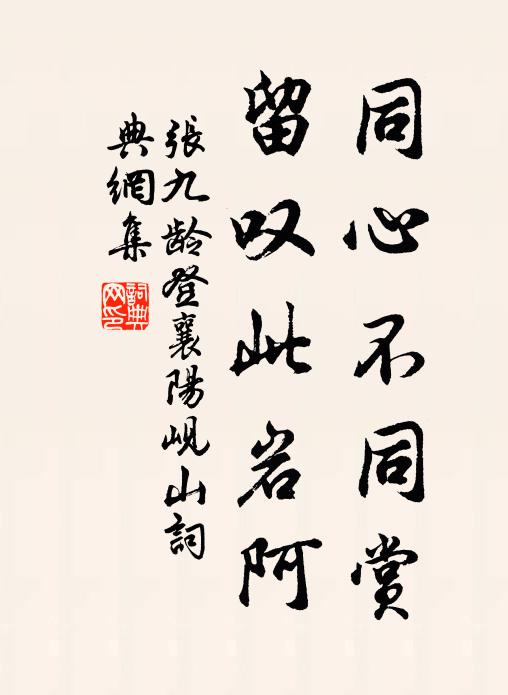 同心不同赏
留叹此岩阿
张九龄登襄陽岘山詞
典網集
詞典
网印